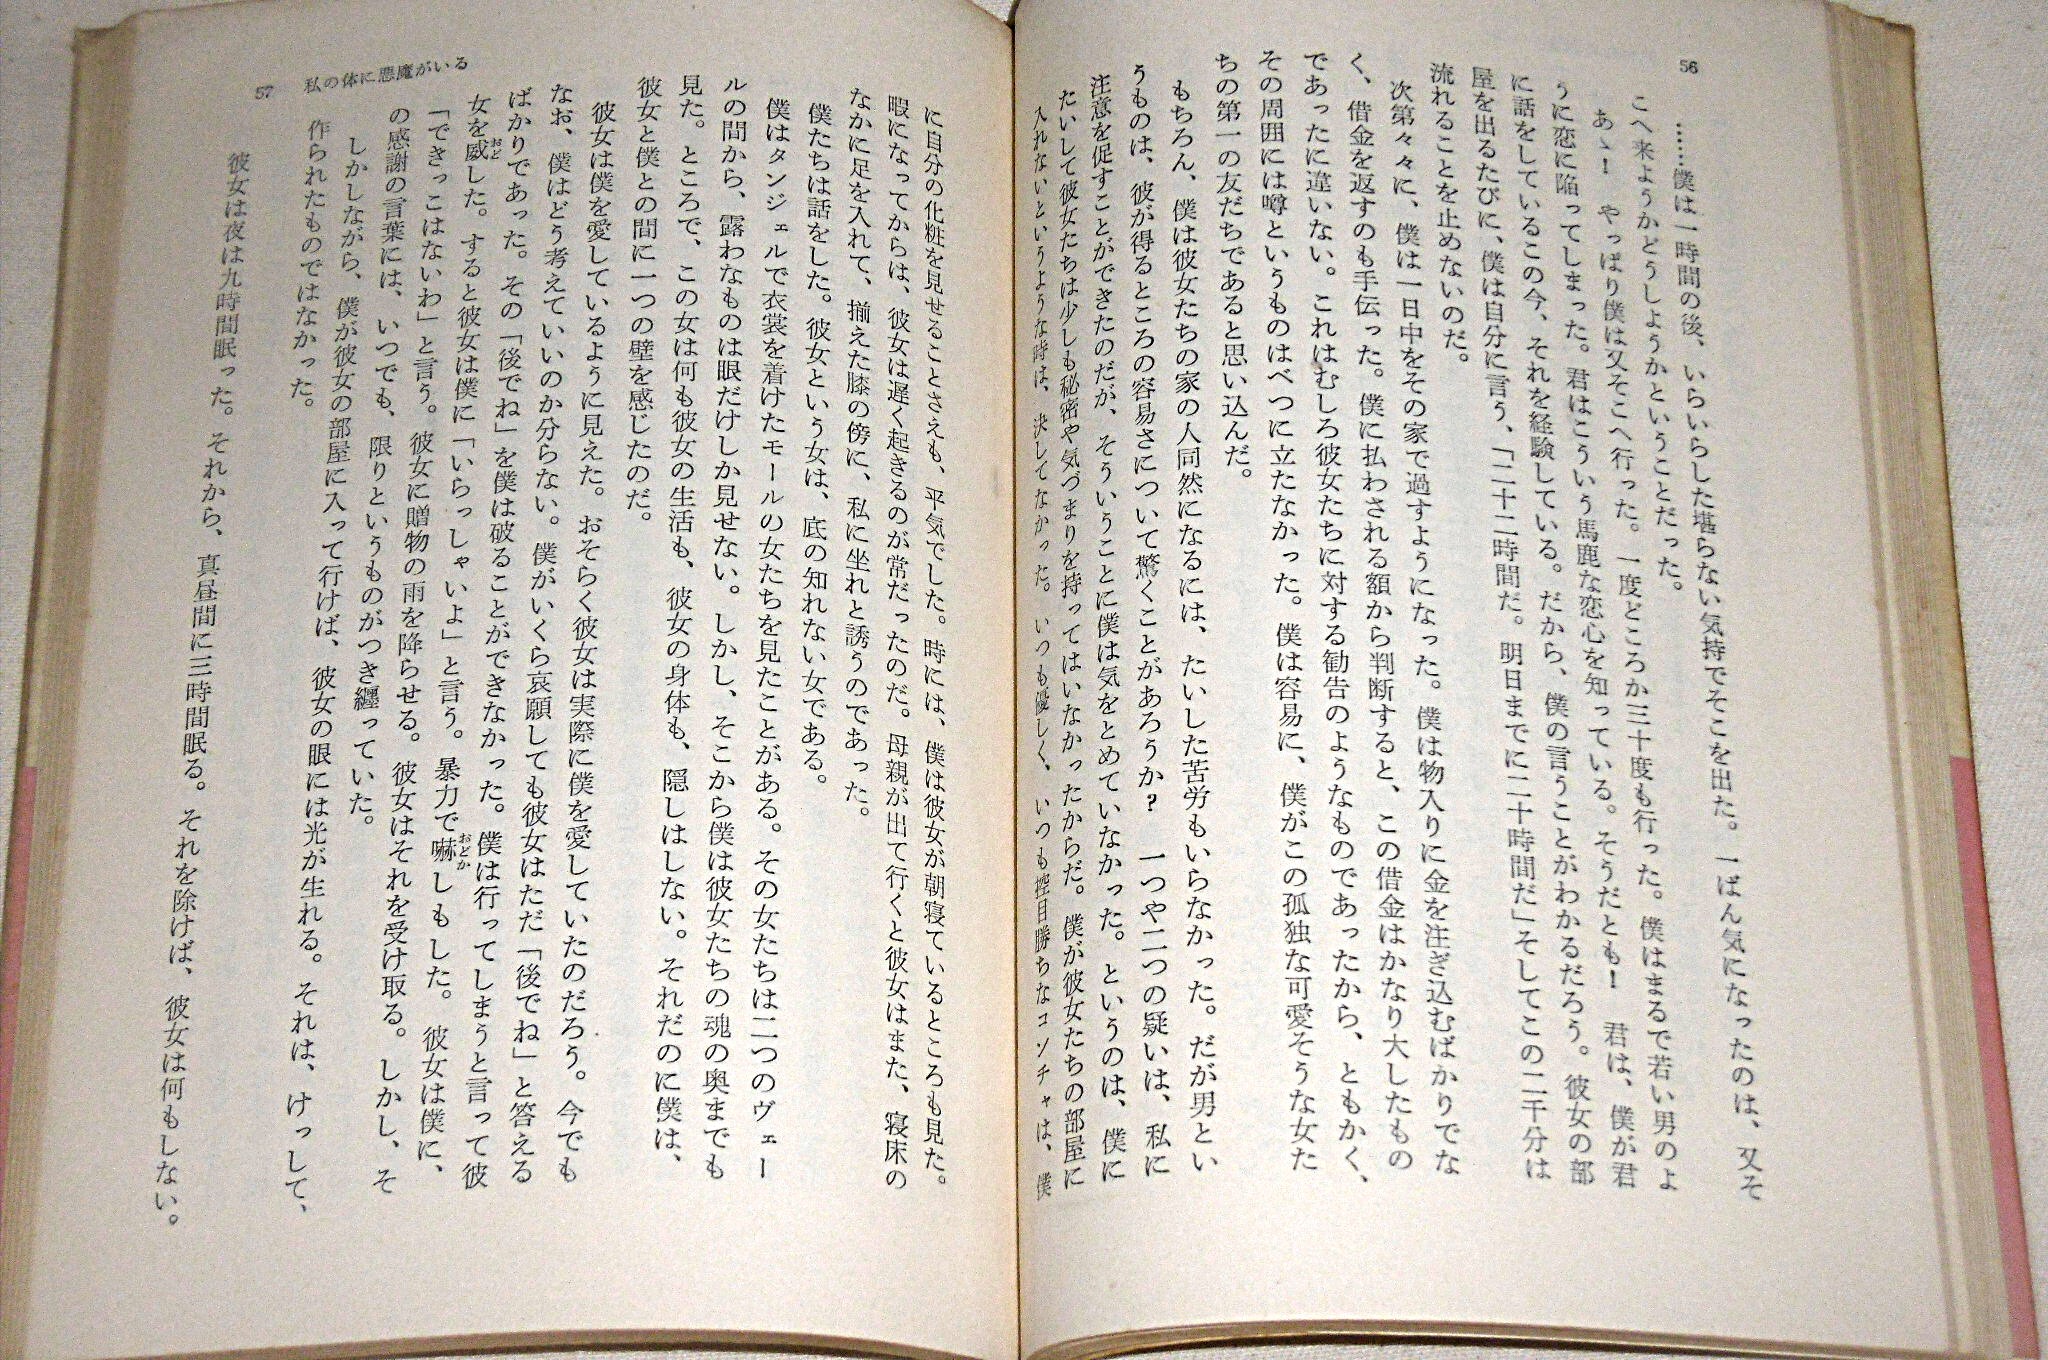 56
……僕は一時間の後、いらいらした堪らない気持でそこを出た。一ばん気になったのは、又そ
こへ来ようかどうしようかということだった。
あゝ！　やっぱり僕は又そこへ行った。一度どころか三十度も行った。僕はまるで若い男のよ
うに恋に陥ってしまった。君はこういう馬鹿な恋心を知っている。そうだとも！　君は、僕が君
に話をしているこの今、それを経験している。だから、僕の言うことがわかるだろう。彼女の部
屋を出るたびに、僕は自分に言う、「二十二時間だ。明日までに二十時間だ」そしてこの二千分は
流れることを止めないのだ。
次第々々に、僕は一日中をその家で過すようになった。僕は物入りに金を注ぎ込むばかりでな
く、借金を返すのも手伝った。僕に払わされる額から判断すると、この借金はかなり大したもの
であったに違いない。これはむしろ彼女たちに対する勧告のようなものであったから、ともかく、
その周囲には噂というものはべつに立たなかった。僕は容易に、僕がこの孤独な可愛そうな女た
ちの第一の友だちであると思い込んだ。
もちろん、僕は彼女たちの家の人同然になるには、たいした苦労もいらなかった。だが男とい
うものは、彼が得るところの容易さについて驚くことがあろうか？　一つや二つの疑いは、私に
注意を促すことができたのだが、そういうことに僕は気をとめていなかった。というのは、僕に
たいして彼女たちは少しも秘密や気づまりを持ってはいなかったからだ。僕が彼女たちの部屋に
入れないというような時は、決してなかった。いつも優しく、いつも控目勝ちなコンチャは、僕
57　私の体に悪魔がいる
に自分の化粧を見せることさえも、平気でした。時には、僕は彼女が朝寝ているところも見た。
暇になってからは、彼女は遅く起きるのが常だったのだ。母親が出て行くと彼女はまた、寝床の
なかに足を入れて、揃えた膝の傍に、私に坐れと誘うのであった。
僕たちは話をした。彼女という女は、底の知れない女である。
僕はタンジェルで衣裳を着けたモールの女たちを見たことがある。その女たちは二つのヴェー
ルの間から、露わなものは眼だけしか見せない。しかし、そこから僕は彼女たちの魂の奥までも
見た。ところで、この女は何も彼女の生活も、彼女の身体も、隠しはしない。それだのに僕は、
彼女と僕との間に一つの壁を感じたのだ。
彼女は僕を愛しているように見えた。おそらく彼女は実際に僕を愛していたのだろう。今でも
なお、僕はどう考えていいのか分らない。僕がいくら哀願しても彼女はただ「後でね」と答える
ばかりであった。その「後でね」を僕は破ることができなかった。僕は行ってしまうと言って彼
女を威おどした。すると彼女は僕に「いらっしゃいよ」と言う。暴力で嚇おどかしもした。彼女は僕に、
「できっこはないわ」と言う。彼女に贈物の雨を降らせる。彼女はそれを受け取る。しかし、そ
の感謝の言葉には、いつでも、限りというものがつき纏っていた。
しかしながら、僕が彼女の部屋に入って行けば、彼女の眼には光が生れる。それは、けっして、
作られたものではなかった。
彼女は夜は九時間眠った。それから、真昼間に三時間眠る。それを除けば、彼女は何もしない。